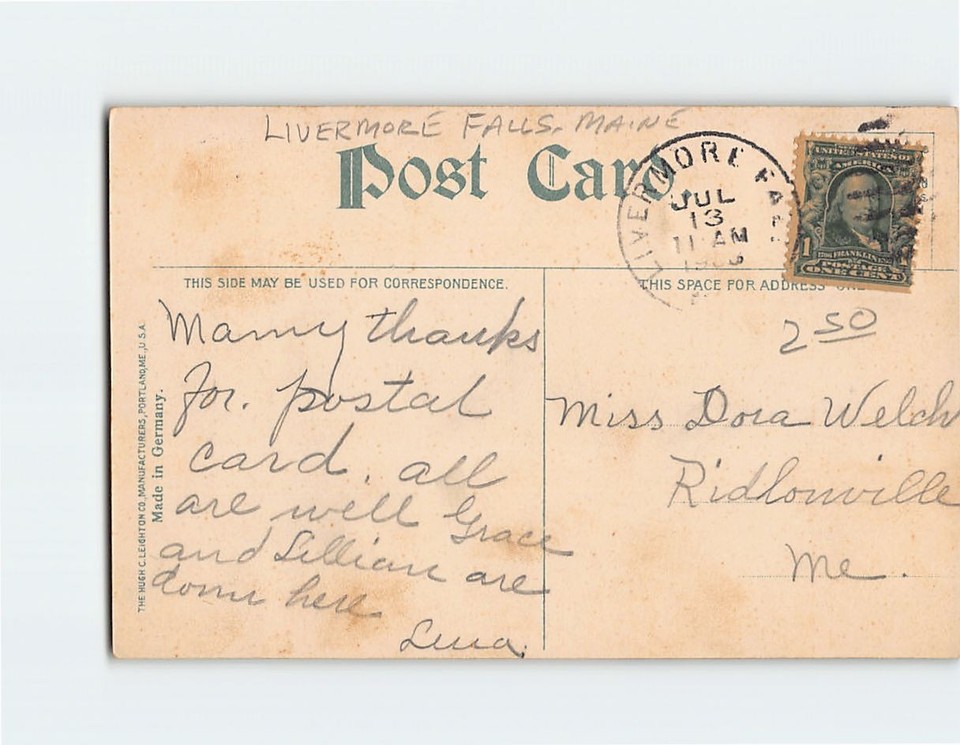 LIVERMORE FALLS, MAINE
Post Card
LIVERMORE FALL
JUL
13
11 AM
UNITED STATES OF
AMERICA
1
FRANKLIN
POSTAGE
ONE CENT
THIS SIDE MAY BE USED FOR CORRESPONDENCE.
THIS SPACE FOR ADDRESS
2 50
Mamy thanks
for. postal
card. all
are well Grace
and Lillian are
down here
Lena.
Miss Dora Welch
Ridlonville
Me.
THE HUGH C. LEIGHTON CO., MANUFACTURERS, PORTLAND, ME., U.S.A.
Made in Germany.